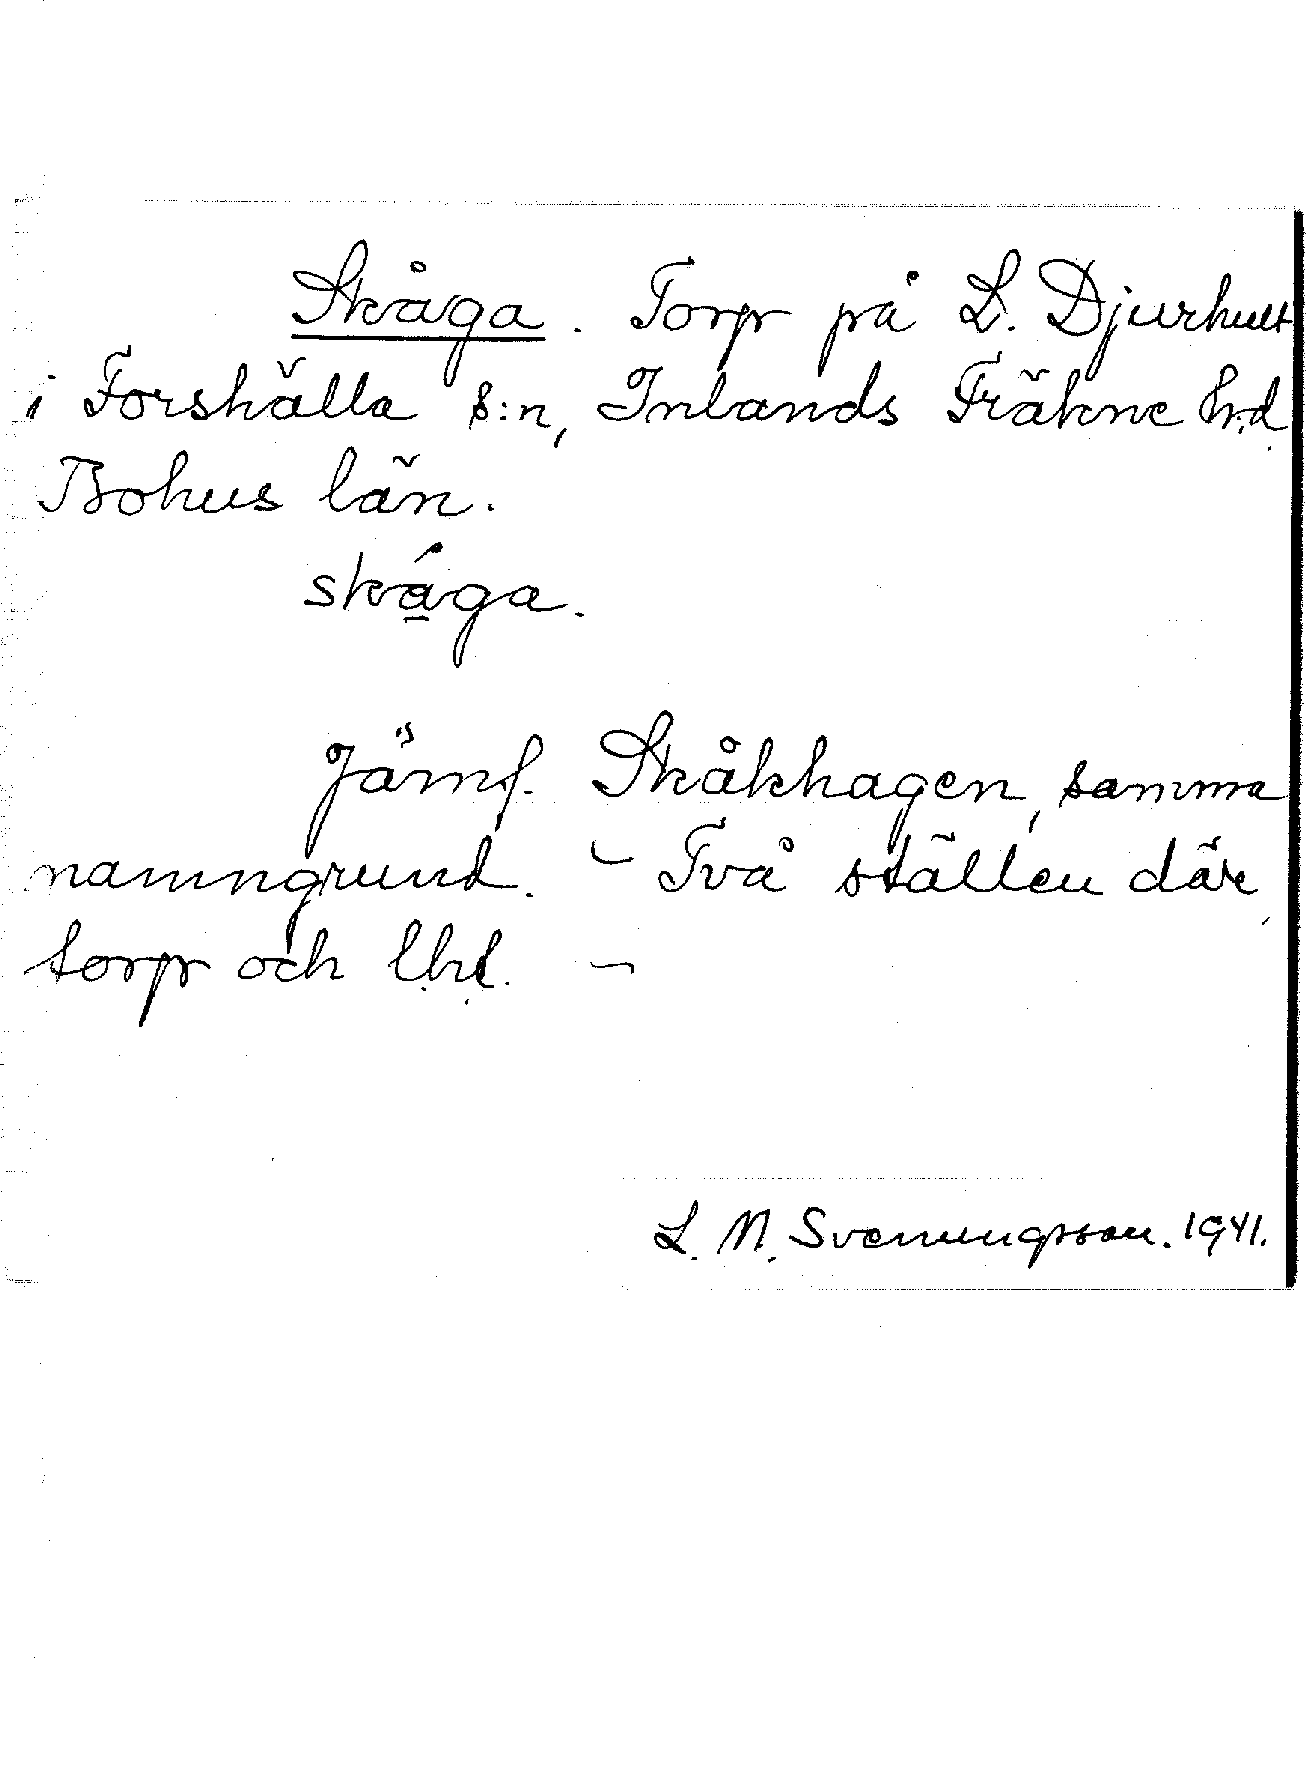 Skåga. Torp på L. Djurhult
i Forshälla s:n, Inlands Fräkne h:d
Bohus län.
skåga.
Jämf. Skåkhagen, samma
namngrund. - Två ställen där
torp och lht. -
L. N. Svenungsson. 1941.